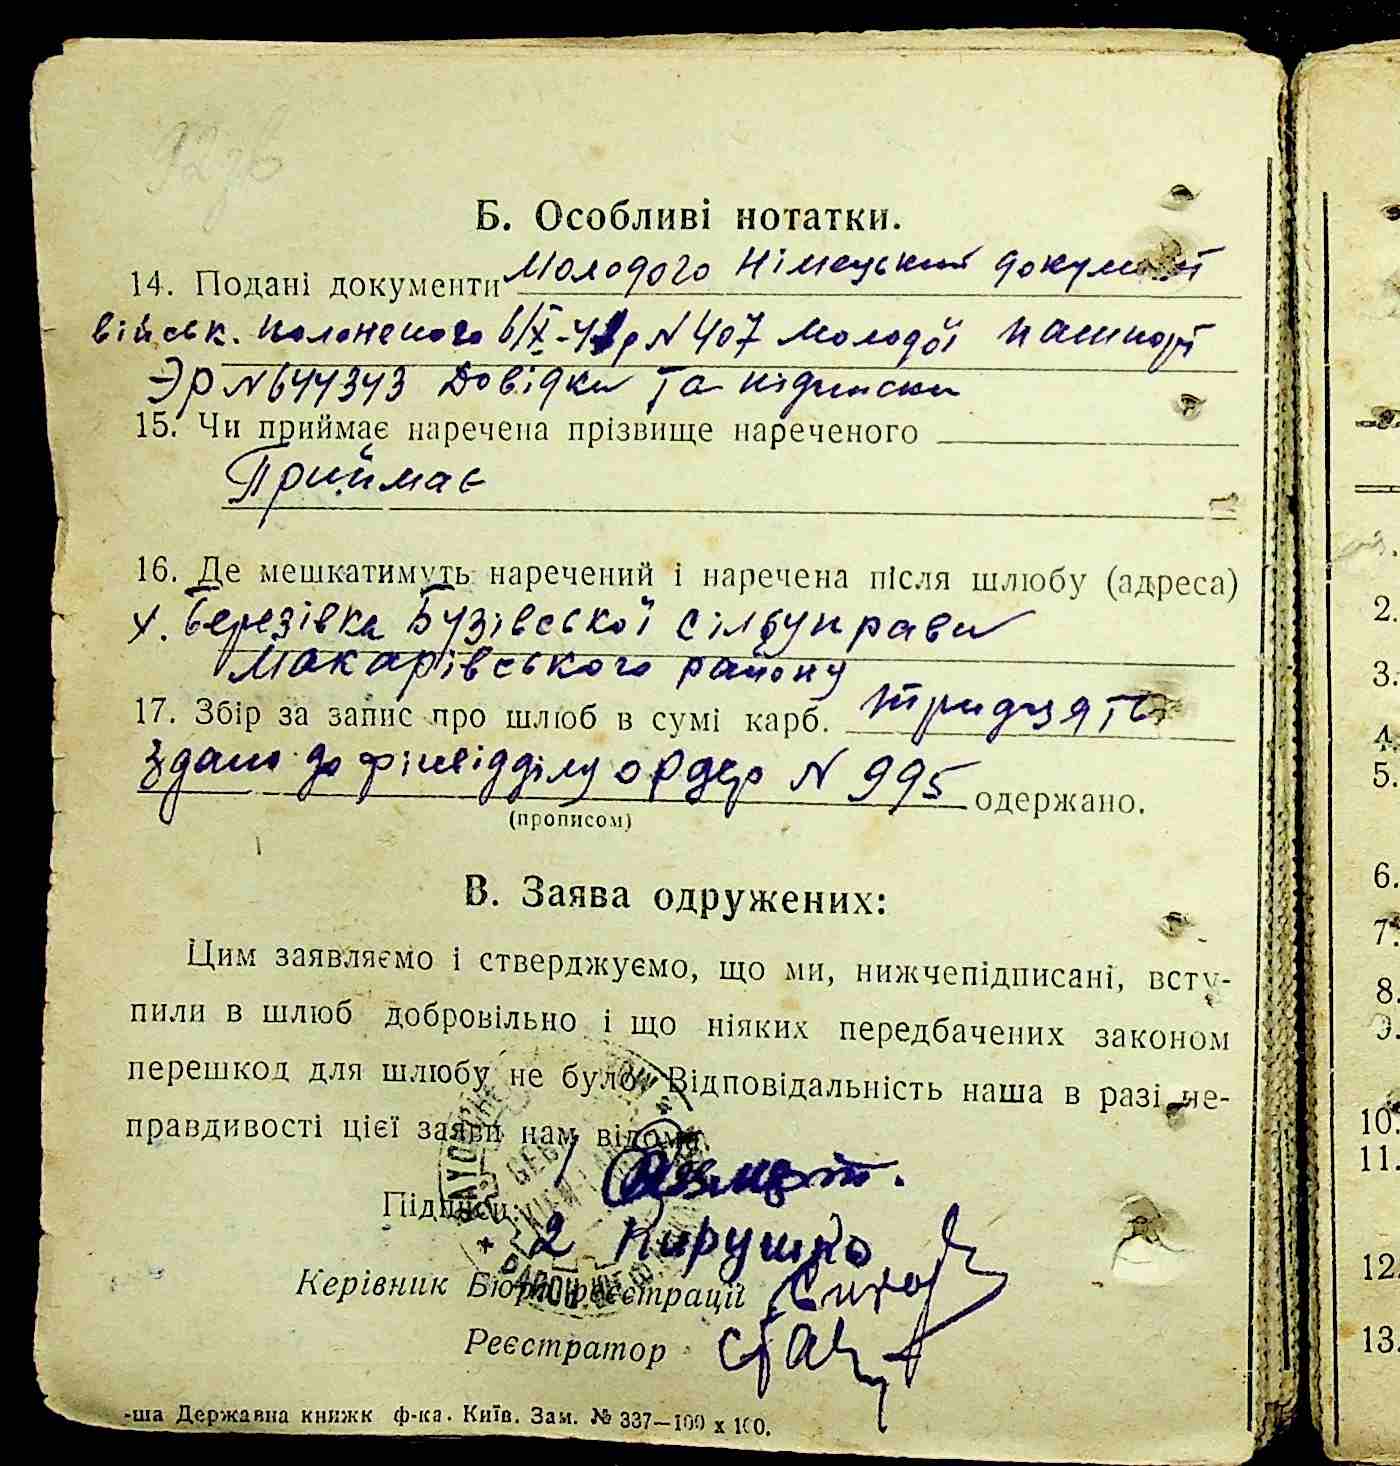 92зв
Б. Особливі нотатки.
14. Подані документи Молодого Німецький документ
військ. полоненого 6/X-41р N 407 Молодої пашпорт
ЭР N 644343 Довідки та підписки
15. Чи приймає наречена прізвище нареченого
Приймає
16. Де мешкатимуть наречений і наречена після шлюбу (адреса)
х. Березівка Бузівської сільуправи
Макарівського району
17. Збір за запис про шлюб в сумі карб. тридцять
Здано до фінвідділу ордер N 995 одержано.
(прописом)
В. Заява одружених:
Цим заявляємо і стверджуємо, що ми, нижчепідписані, всту-
пили в шлюб добровільно і що ніяких передбачених законом
перешкод для шлюбу не було. Відповідальність наша в разі не-
правдивості цієї заяви нам відома.
Підписи: 1
2 Кирушко
Керівник Бюра реєстрації
Реєстратор
-ша Державна книжк ф-ка. Київ. Зам. № 337—100 х 100.
2.
3.
4.
5.
6.
7.
8.
9.
10.
11.
12.
13.